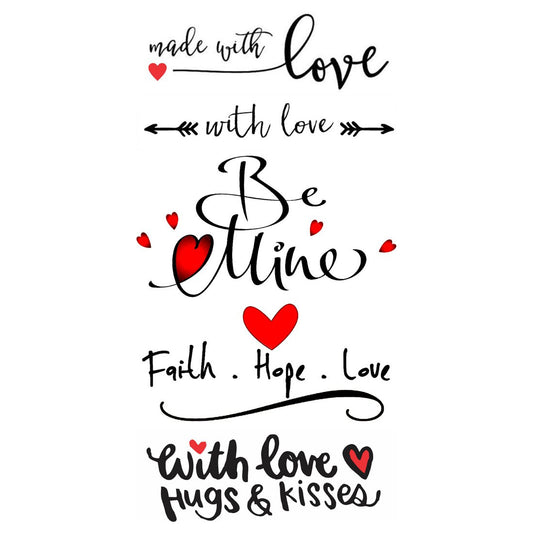 made with love
with love
Be
Mine
Faith . Hope . Love
with love
Hugs & kisses